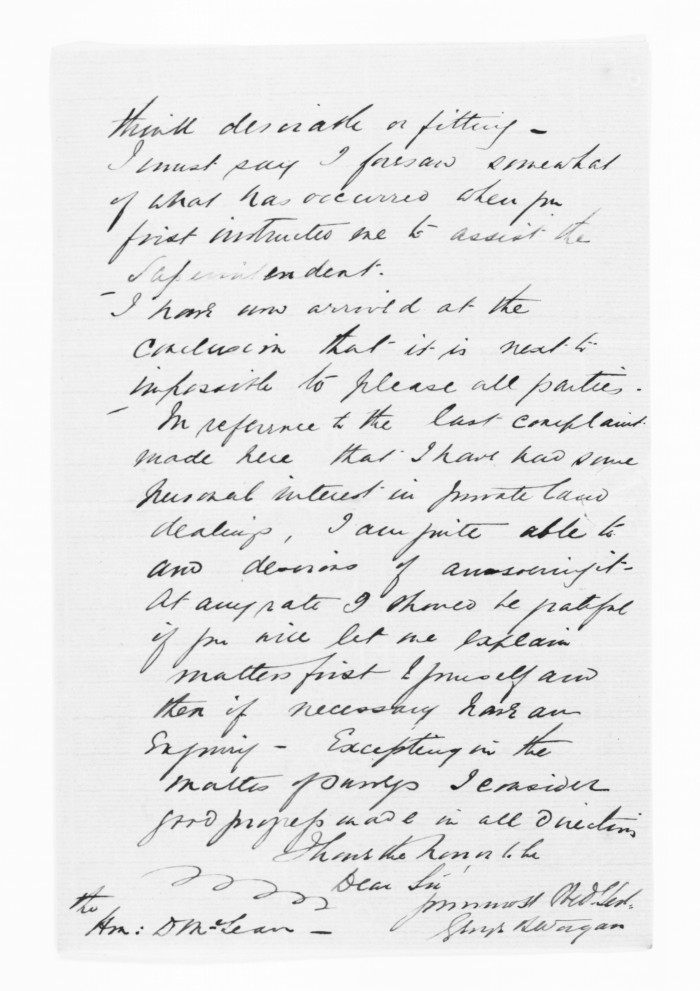 think desirable or fitting -
I must say I foresaw somewhat
of what has occurred when you
first instructed me to assist the
Superintendent.
- I have now arrived at the
conclusion that it is next to
impossible to please all parties.
- In reference to the last complaint
made here that I have had some
personal interest in private land
dealings, I am quite able to
and desirous of answering it-
At any rate I should be grateful
if you will let me explain
matters first to yourself and
then if necessary have an
Enquiry - Excepting in the
matter of surveys I consider
good progress made in all directions
I have the honor to be
Dear Sir,
your most Obed. Servt.
George B Worgan
the
Hon: D McLean -